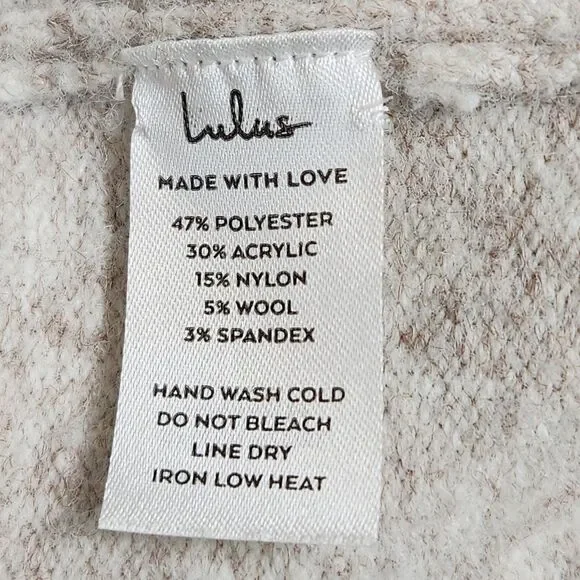 Lulus
MADE WITH LOVE
47% POLYESTER
30% ACRYLIC
15% NYLON
5% WOOL
3% SPANDEX
HAND WASH COLD
DO NOT BLEACH
LINE DRY
IRON LOW HEAT